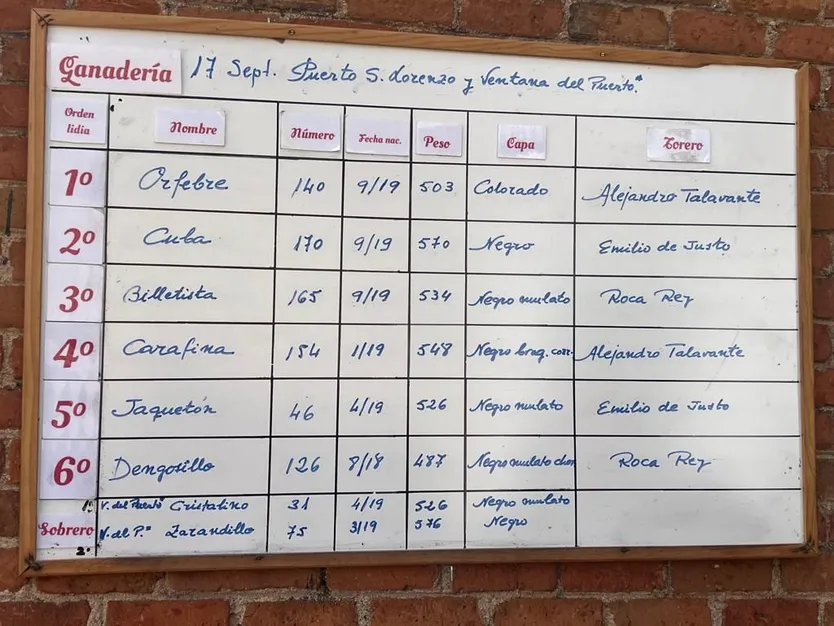 Ganadería 17 Sept. Puerto S. Lorenzo y Ventana del Puerto."
Orden lidia Nombre Número Fecha nac. Peso Capa Torero
1º Orfebre 140 9/19 503 Colorado Alejandro Talavante
2º Cuba 170 9/19 570 Negro Emilio de Justo
3º Billetista 165 9/19 534 Negro mulato Roca Rey
4º Carafina 154 1/19 548 Negro brag. corr. Alejandro Talavante
5º Jaquetón 46 4/19 526 Negro mulato Emilio de Justo
6º Dengosillo 126 8/18 487 Negro mulato chor Roca Rey
1º V. del Puerto" Cristalino 31 4/19 526 Negro mulato
Sobrero V. del P.º Zarandillo 75 3/19 576 Negro
2º